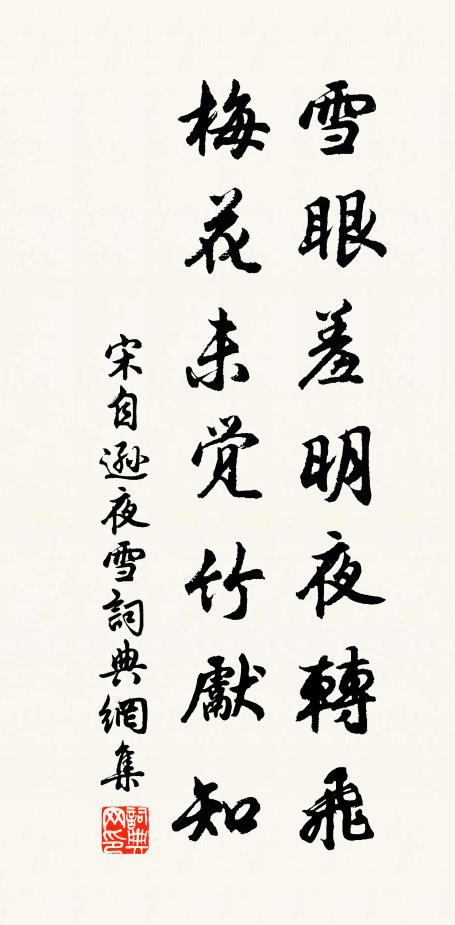 雪眼羞明夜轉飛
梅花未覺竹獻知
宋自遜夜雪詞典網集
詞典網印